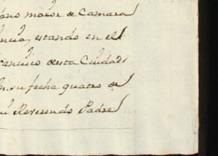 ano maior de Camara
encia, estando en el
rancisco desta Ciudad
en su fecha quatro de
el Reverendo Padre